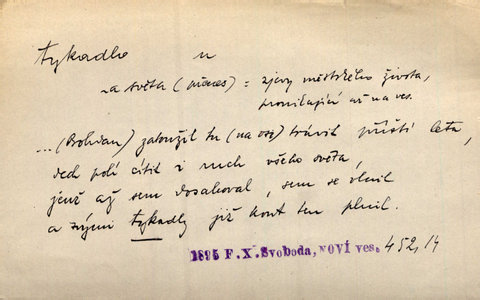 tykadlo n
~a světa (přenes) = zjevy městského života,
pronikající až na ves.
...(Bohdan) zatoužil tu (na vsi) trávit příští léta,
dech polí cítit i ruch všeho světa,
jenž až sem dosahoval, sem se vlnil
a svými tykadly již kout ten plnil.
1895 F.X.Svoboda, NOVÍ ves. 452,14